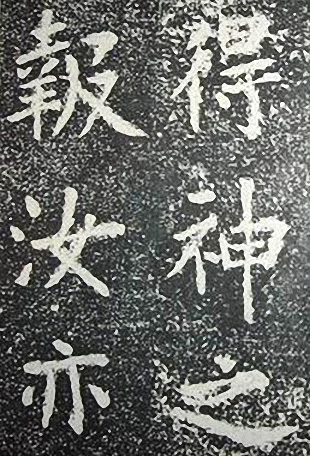 得神之
報汝亦